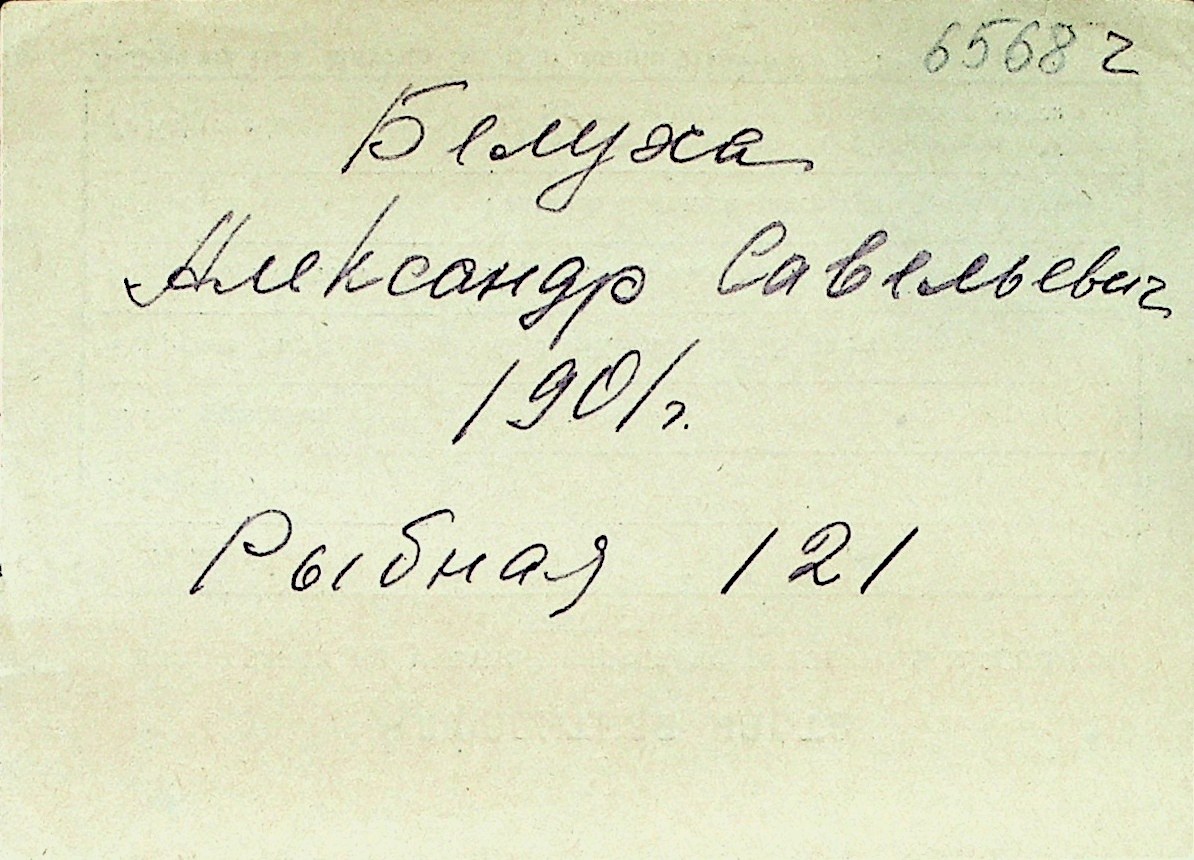 6568 г
Белуха
Александр Савельевич
1901г.
Рыбная 121